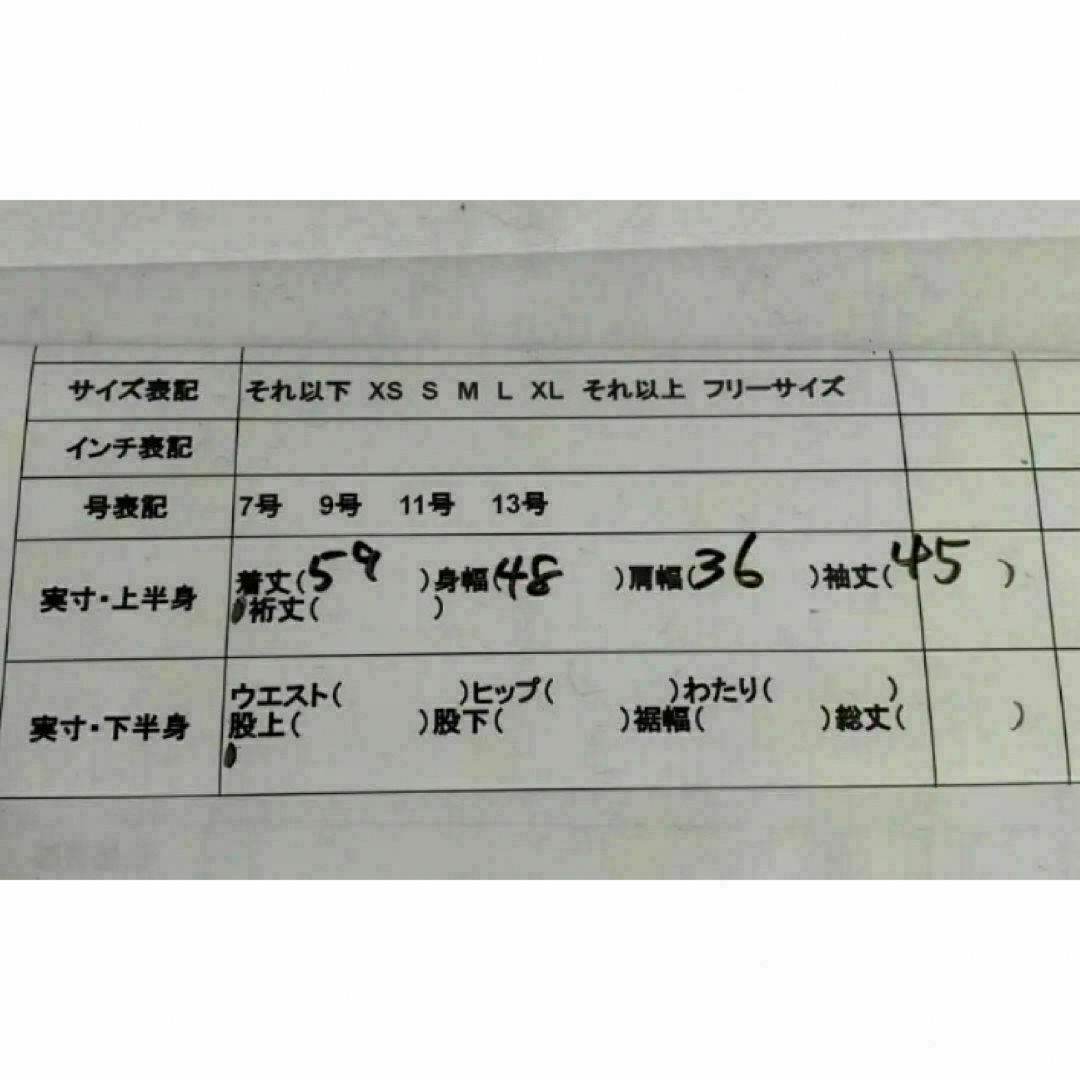 サイズ表記 それ以下 XS S M L XL それ以上 フリーサイズ
インチ表記
号表記 7号 9号 11号 13号
実寸・上半身 着丈(59 )身幅(48 )肩幅(36 )袖丈(45 )
裄丈( )
実寸・下半身 ウエスト( )ヒップ( )わたり( )
股上( )股下( )裾幅( )総丈( )